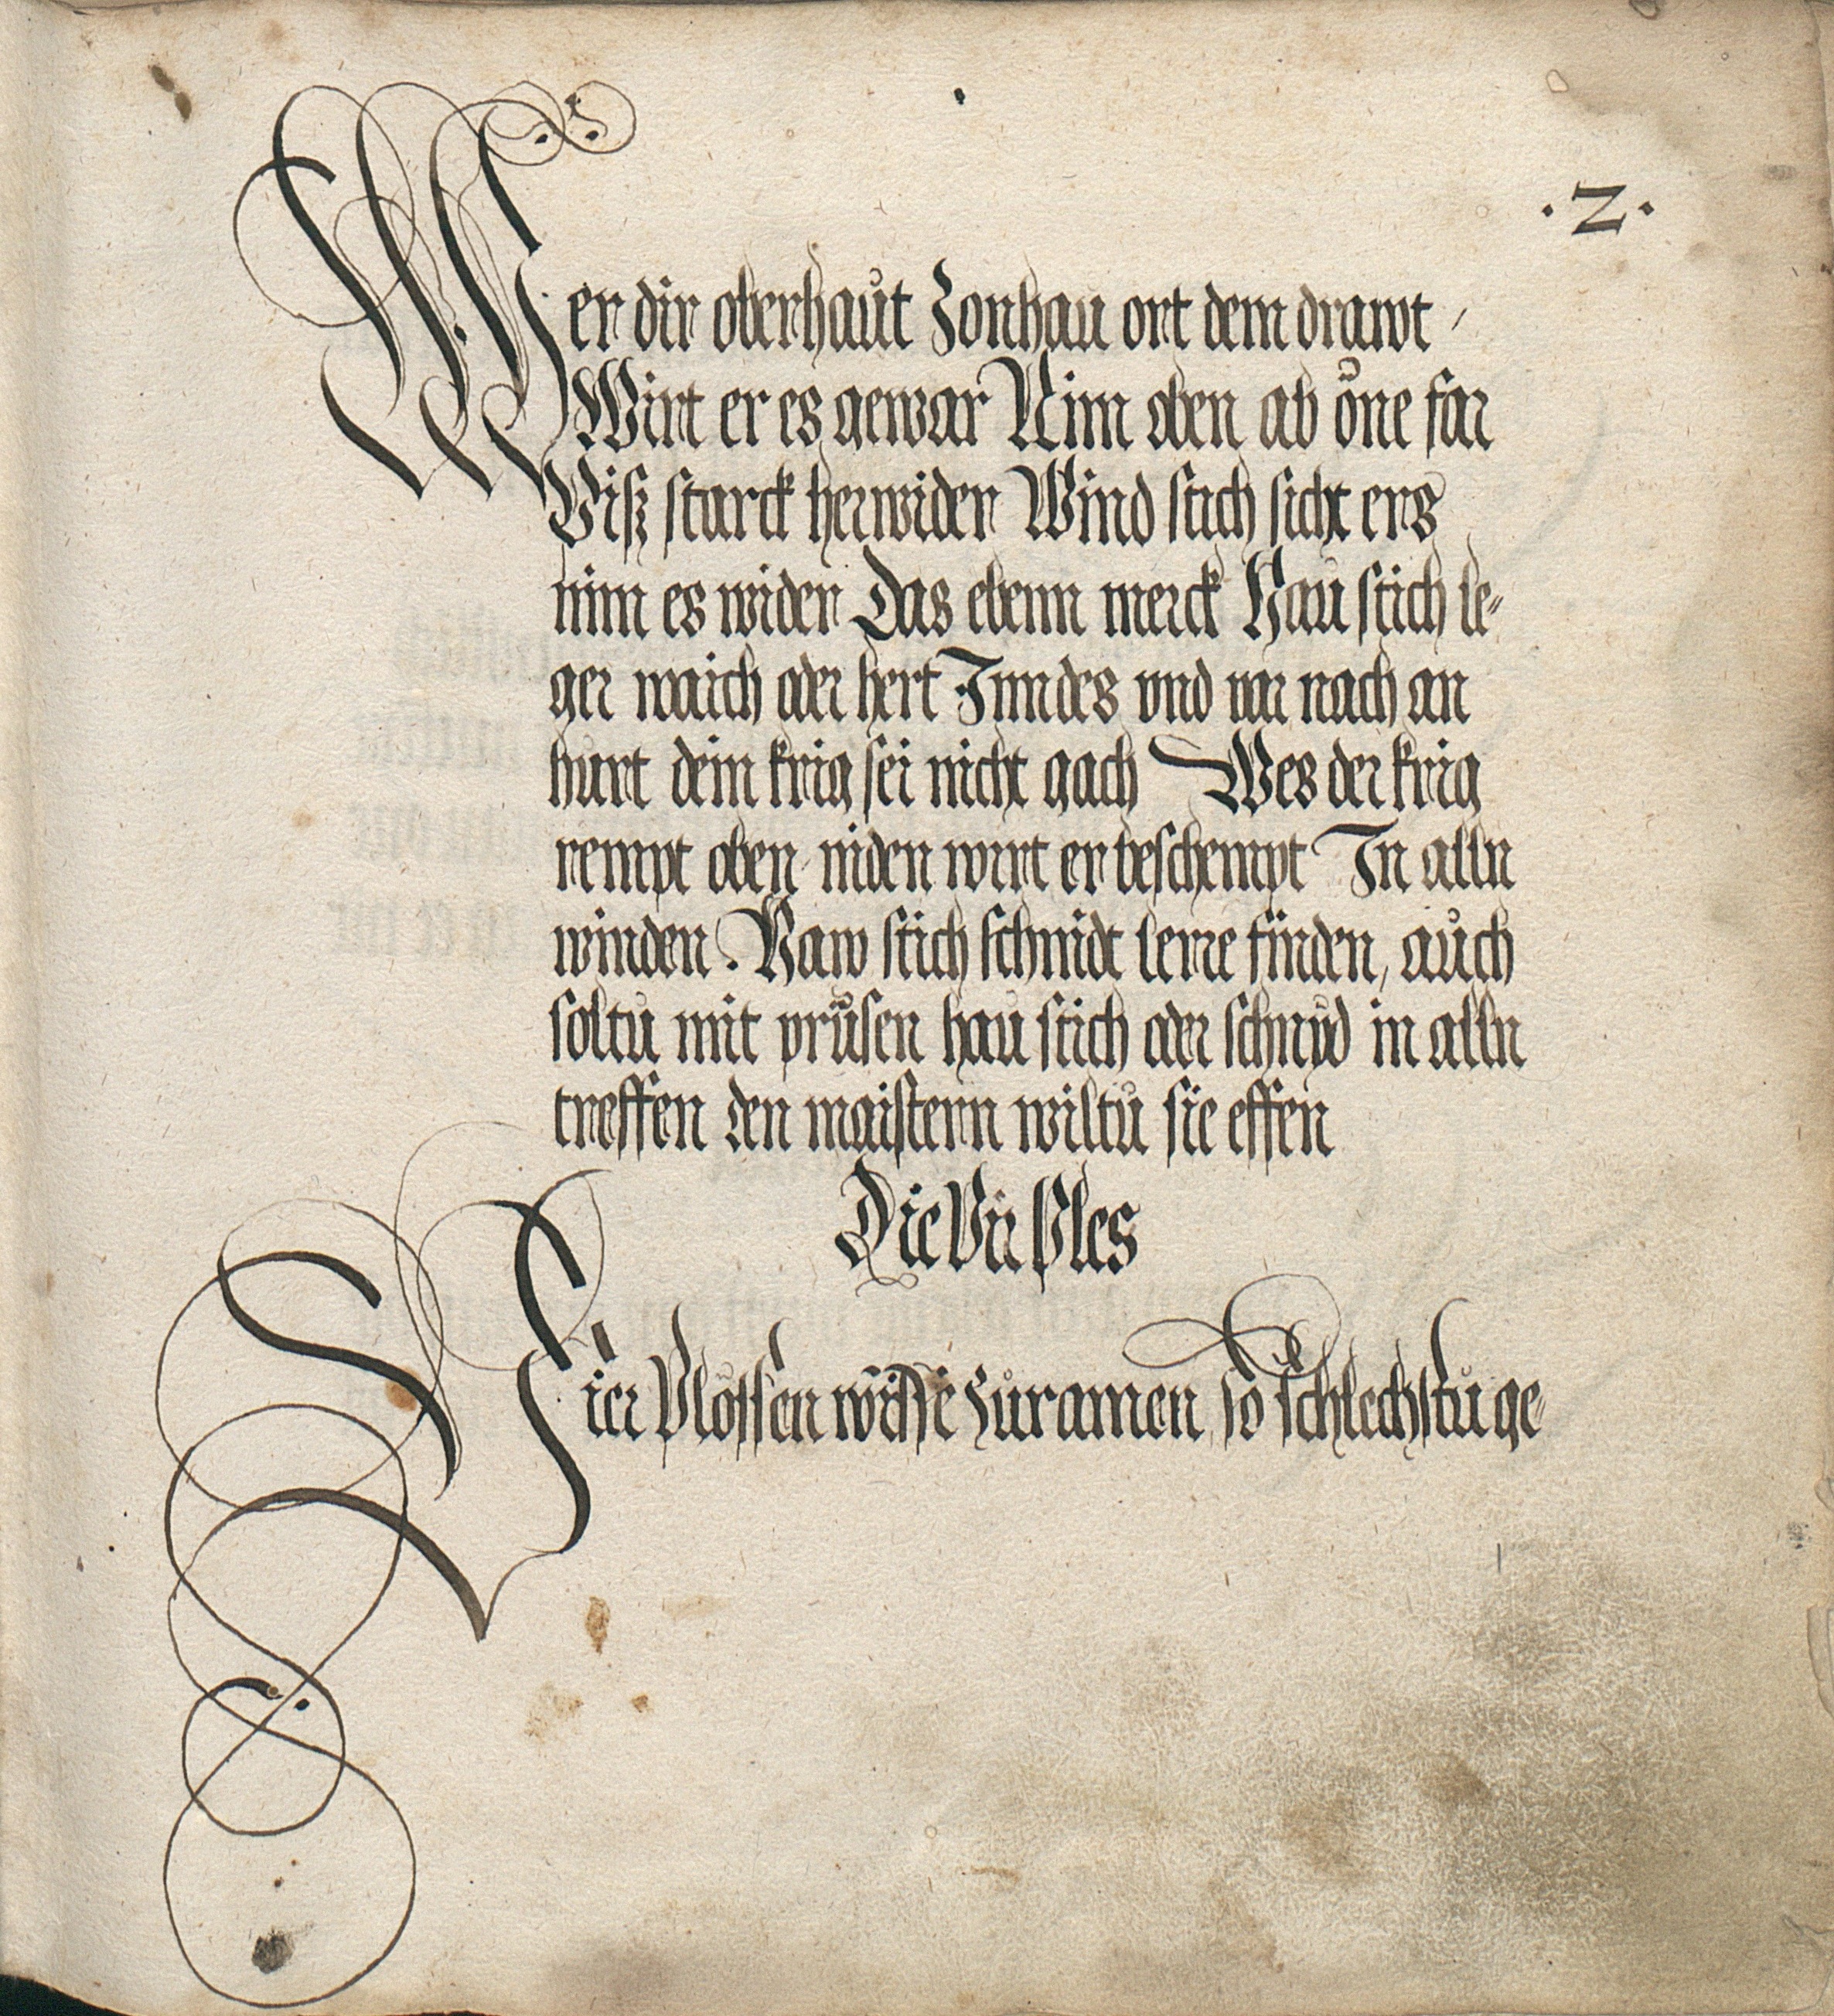 .2.
Wer dir oberhaůt Zornhau ort dem drawt /
Wirt er es gewar Nim oben ab one far
Biß starck herwider Wind stich sicht ers
nim es wider Das ebenn merck Hau stich le=
ger waich oder hert Inndes vnd var nach an
hurt dein krig sei nicht gach Wes der krig
rempt oben niden wirt er beschempt In alln
winden Haw stich schnidt lerne finden, aůch
soltů mit prüfen hau stich oder schnid in alln
treffen den maistern wiltů sie effen
Die Vir Ples
Vier Blossen wisse zůramen so schlechstů ge=